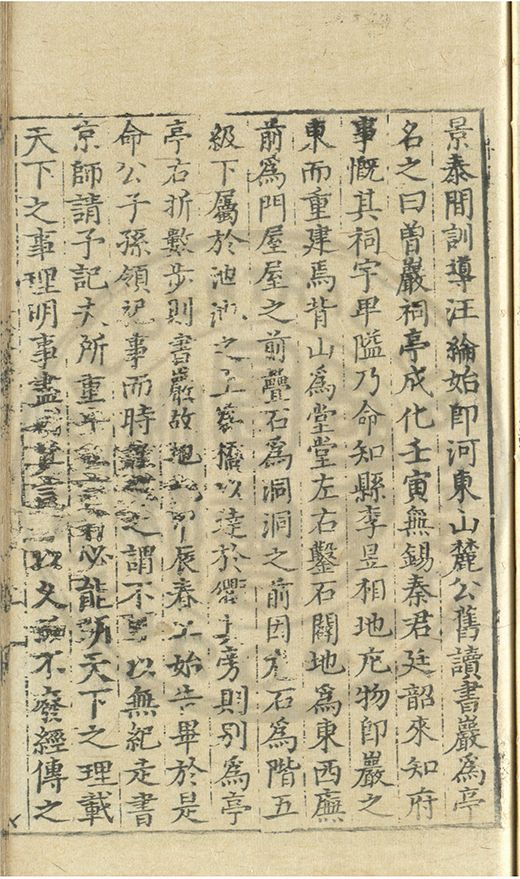 景泰間訓導汪綸始即河東山麓公舊讀書巖為亭
名之曰曽巖祠亭成化壬寅無錫秦君廷韶來知府
事慨其祠宇卑隘乃命知縣李昱相地庀物即巖之
東而重建焉背山為堂堂左右鑿石闢地為東西廡
前爲門屋屋之前疊石爲洞洞之前因石爲階五
級下屬於池池之上橋以達於衢旁則别為亭
亭右折數步則書巖故地辰春始告畢於是
命公子孫領祀事而時之謂不以無紀走書
京師請予記夫所重必能明天下之理載
天下之事理明事盡以文不廢經傳之